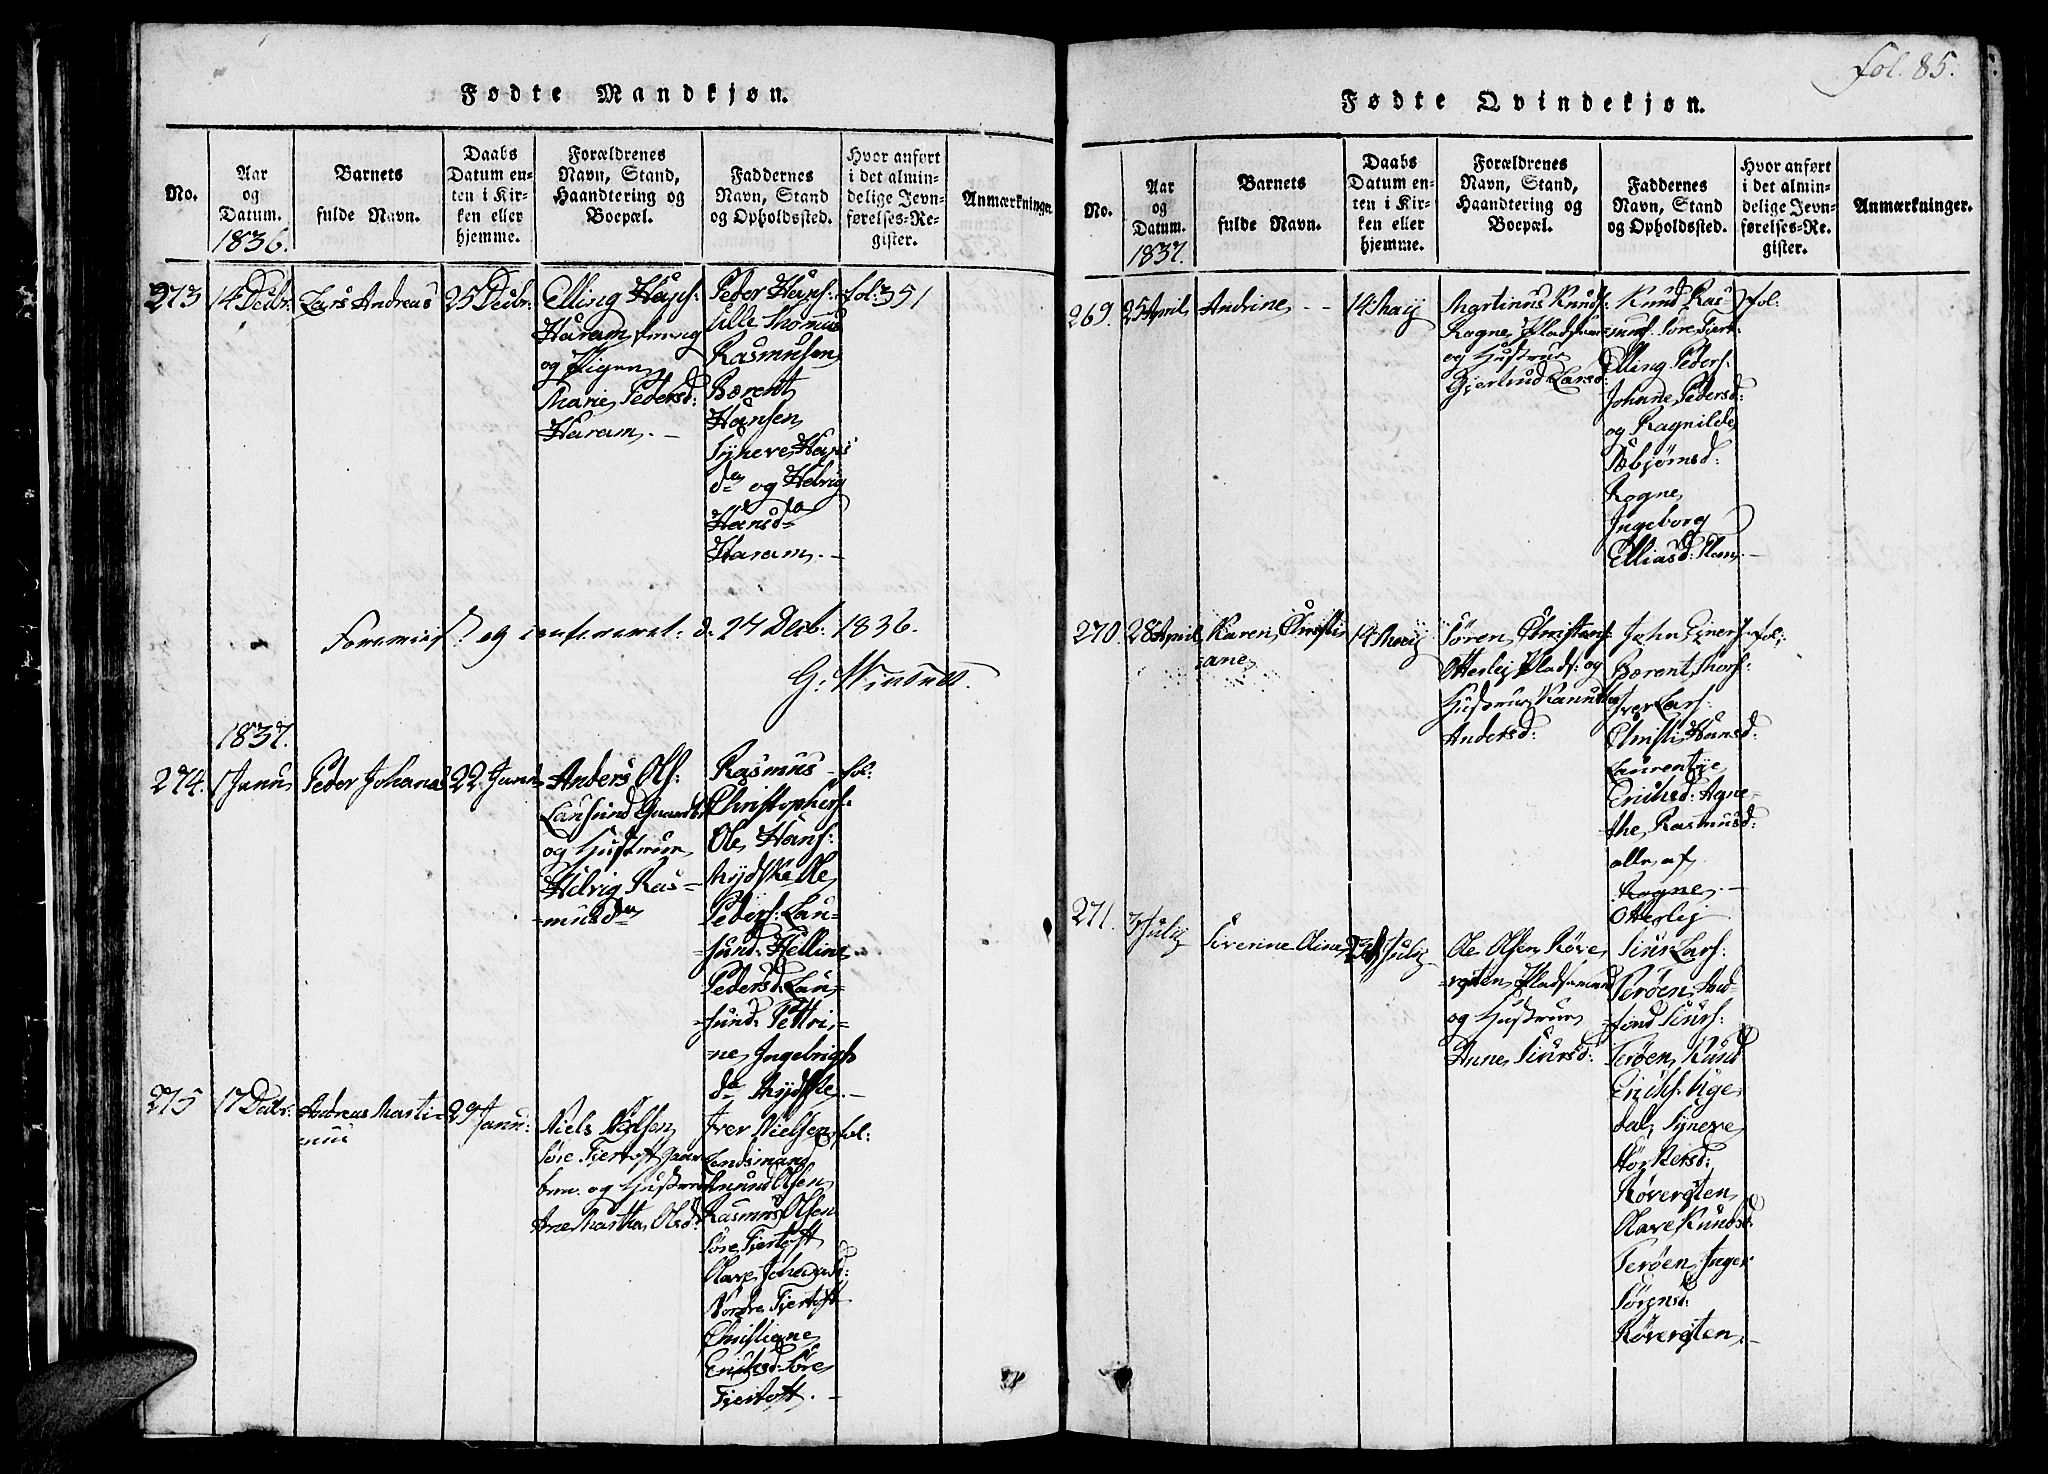 fol. 85.
Fødte Mandkjøn.
No.
Aar
og
Datum.
1836.
Barnets
fulde Navn.
Daabs
Datum en-
ten i Kir-
ken eller
hjemme.
Forældrenes
Navn, Stand,
Haandtering og
Boepæl.
Faddernes
Navn, Stand
og Opholdssted.
Hvor anført
i det almin-
delige Jevn-
førelses-Re-
gister.
Anmærkninger
273
14 Decbr:
Lars Andreas
25 Decbr:
Elling Hans:
Haram,
og Pigen
Marie Pedersd:
Haram. —
Peder Hans:
Lille Thomas
Rasmusen
Bærent
Hansen
Synneve Hans
da og Helvig
Hansda
Haram. —
fol: 351
og confereret: d. 27 Decb: 1836.
G: Winsnes.
1837.
274.
1 Janu
Peder Johanas
22. Janu
Anders Ols:
Lausund Gaardbr
og Hustrue
Helvig Ras-
-musda
Rasmus
Christophers:
Ole Hans:
Mydske Ole
Peders: Lau-
-sund: Helline
Pedersd: Lau-
-sund: Pettri-
ne Ingebrigts
da Mydske. —
fol:
275
17 Decbr:
Andreas Marti-
nus
29 Janu:
Niels Nielsen
Søre Fjertoft Gaar
bru. og Hustrue
Ane Martha Olsd:
Iver Nielsen
Lendsmand
Amund Olsen
Rasmus Olsen
Søre Fjertoft
Olave Johansd:
Nordre Fjertoft
Christiane
Erichsd: Søre
Fjertoft. —
fol:
Fødte Qvindekjøn.
No.
Aar
og
Datum.
1837.
Barnets
fulde Navn.
Daabs
Datum en-
ten i Kir-
ken eller
hjemme.
Forældrenes
Navn, Stand,
Haandtering og
Boepæl.
Faddernes
Navn, Stand
og Opholdssted.
Hvor anført
i det almin-
delige Jevn-
førelses-Re-
gister.
Anmærkninger.
269.
25 April
Andrine
14 Maij
Martinus Knuds:
Rogne Pladsman
og Hustrue
Gjertrud Larsd:
Knud Ras-
mus: Søre Fjert:
Elling Peders:
Johane Pedersd:
og Ragnilde
Æsbjørnsd:
Rogne
Ingeborg
Elliasd:
fol:
270.
28 April
Karen Christi
ane
14 Maij
Søren Christans:
Otterlej Plads: og
Hustrue
Andersd:
John Einers:
Bærent Thors:
Iver Lars:
Christi Hansd:
Laurentze
Erichsd: Agne-
the Rasmusd:
alle af
Rogne. —
Otterlej
fol:
271.
7 Julij
Siverine Oline
23 Julij
Ole Olsen Røve
-rgten Pladsmand
og Hustrue
Anne Siursd:
Siur Lars:
Terøen And-
-find Siurs:
Terøen Knud
Erichs: Uge
dal, Synneve
Kørstersd:
Røvergten
Olave Knudsd
Terøen Inger
Sørensd:
Røvergten. —